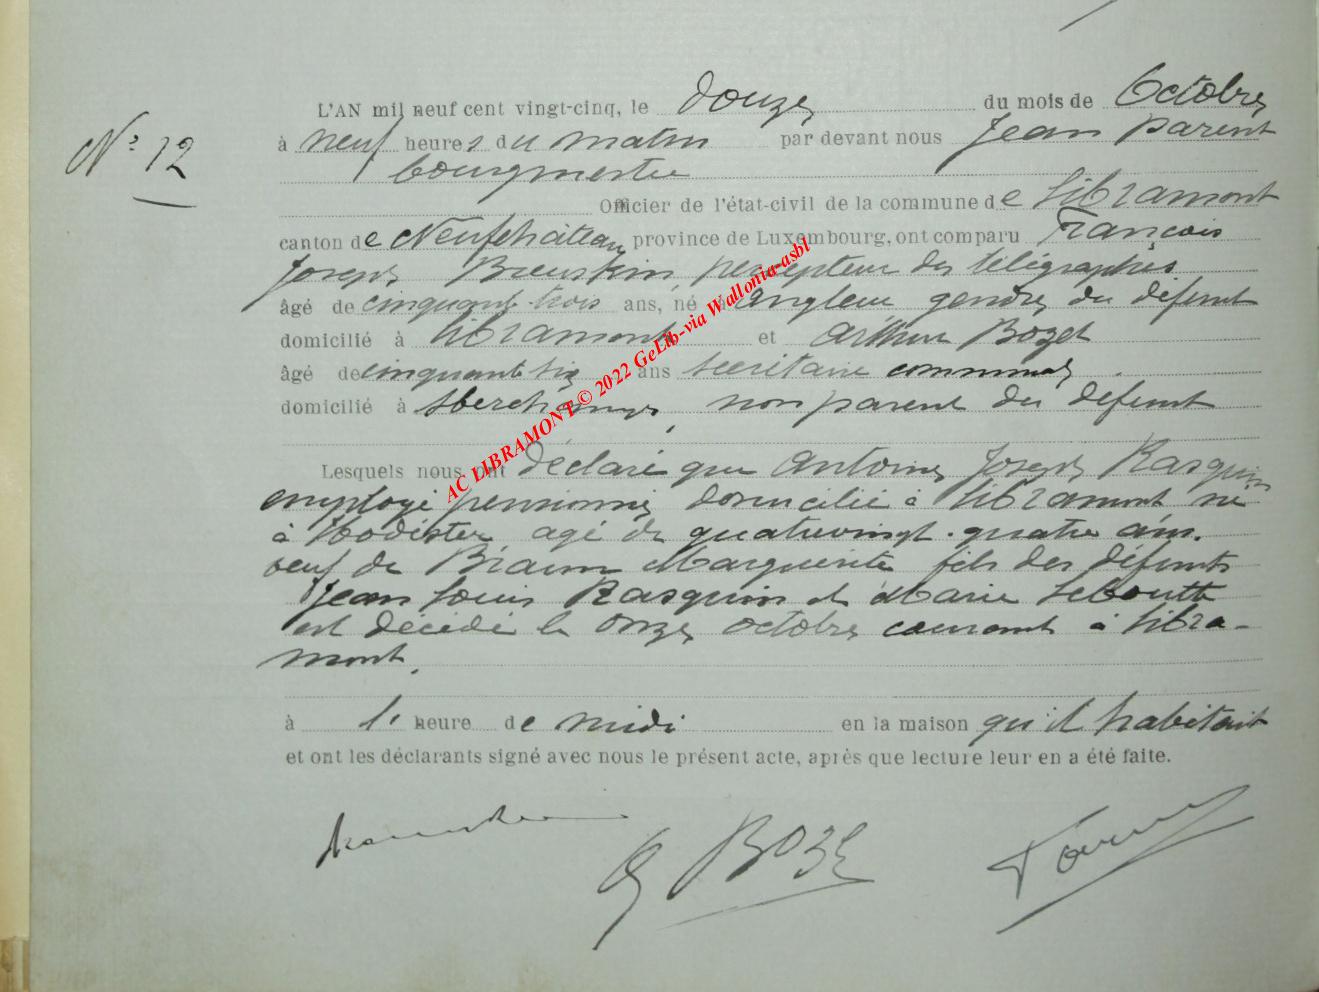 L'AN mil neuf cent vingt-cinq, le douze du mois de Octobre
N° 12
à neuf heures du matin par devant nous Jean Parent
bourgmestre
Officier de l'état-civil de la commune de Libramont
canton de Neufchâteau province de Luxembourg, ont comparu François
Joseph percepteur des télégraphes
âgé de cinquante trois ans, né à Angleur gendre du défunt
domicilié à Libramont et Arthur Bozet
âgé de cinquante six ans secrétaire communal
domicilié à non parent du défunt
Lesquels nous ont déclaré que Antoine Joseph Rasquin
employé pensionné domicilié à Libramont né
à Hodister agé de quatrevingt-quatre ans.
veuf de Braun Marguerite fils des défunts
Jean Louis Rasquin et Marie Leboutte
est décédé le onze octobre courant à Libra-
mont.
à 1 heure de midi en la maison qu'il habitait
et ont les déclarants signé avec nous le présent acte, après que lecture leur en a été faite.
A Bozet
AC LIBRAMONT © 2022 GeLib-via Wallonia-asbl